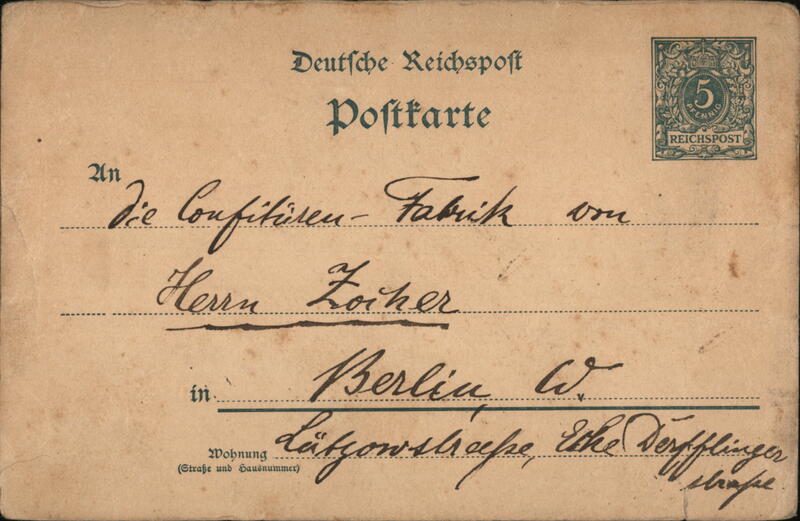 Deutsche Reichspost
Postkarte
5
PFENNIG
REICHSPOST
An
die Confitüren-Fabrik von
Herrn Zocher
in Berlin, W.
Wohnung Lützowstraße, Ecke Derfflinger
(Straße und Hausnummer)
straße